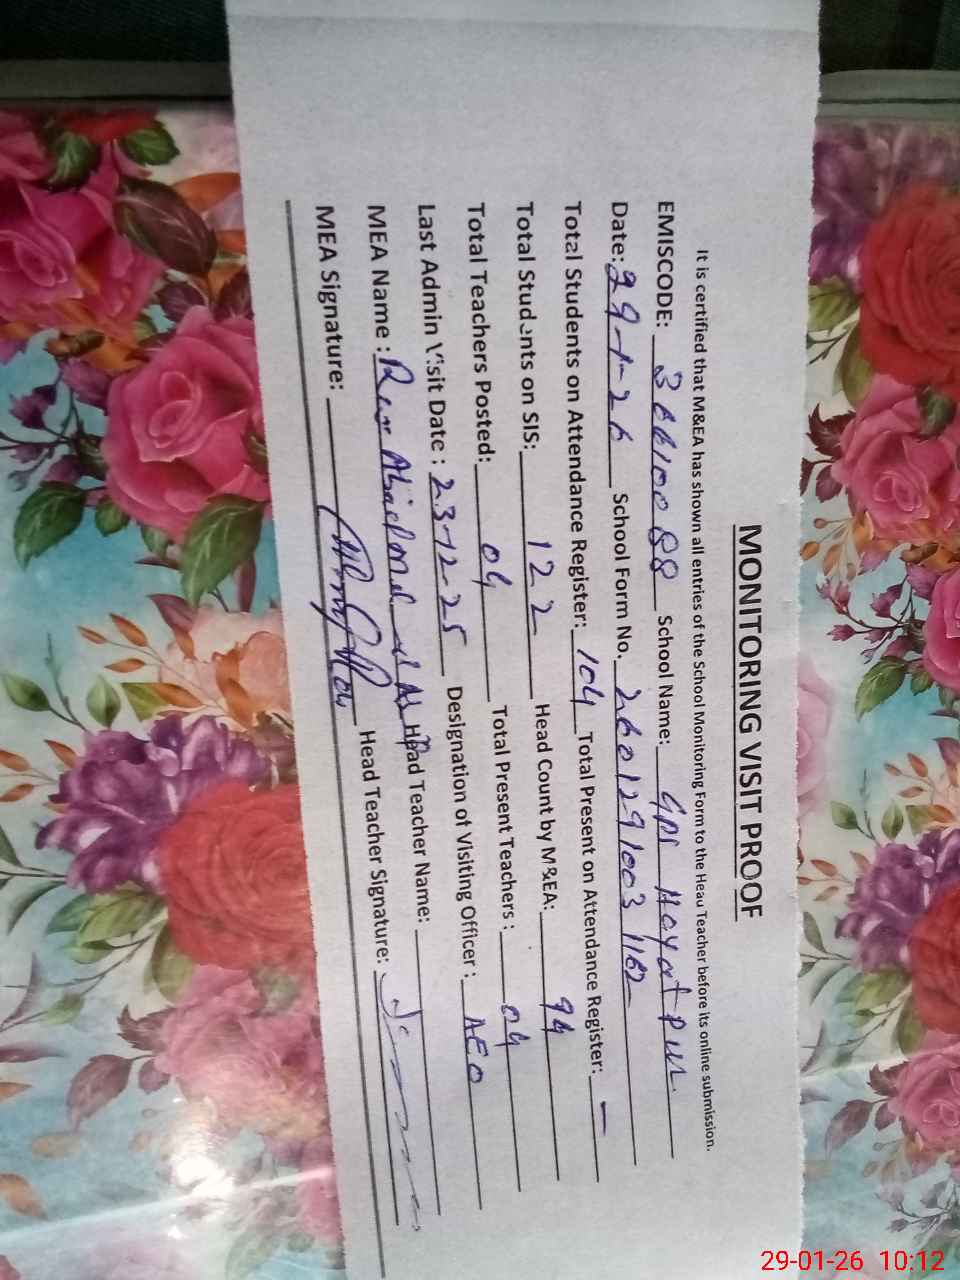 MONITORING VISIT PROOF
It is certified that M&EA has shown all entries of the School Monitoring Form to the Head Teacher before its online submission.
EMISCODE: School Name: GPS Hayat pur
Date: 29-1-26 School Form No. 2601291003
Total Students on Attendance Register: 104 Total Present on Attendance Register: —
Total Students on SIS: 122 Head Count by M&EA: 94
Total Teachers Posted: 04 Total Present Teachers : 04
Last Admin Visit Date : 23-12-25 Designation of Visiting Officer : AEO
MEA Name : Head Teacher Name:
MEA Signature: Head Teacher Signature:
29-01-26 10:12